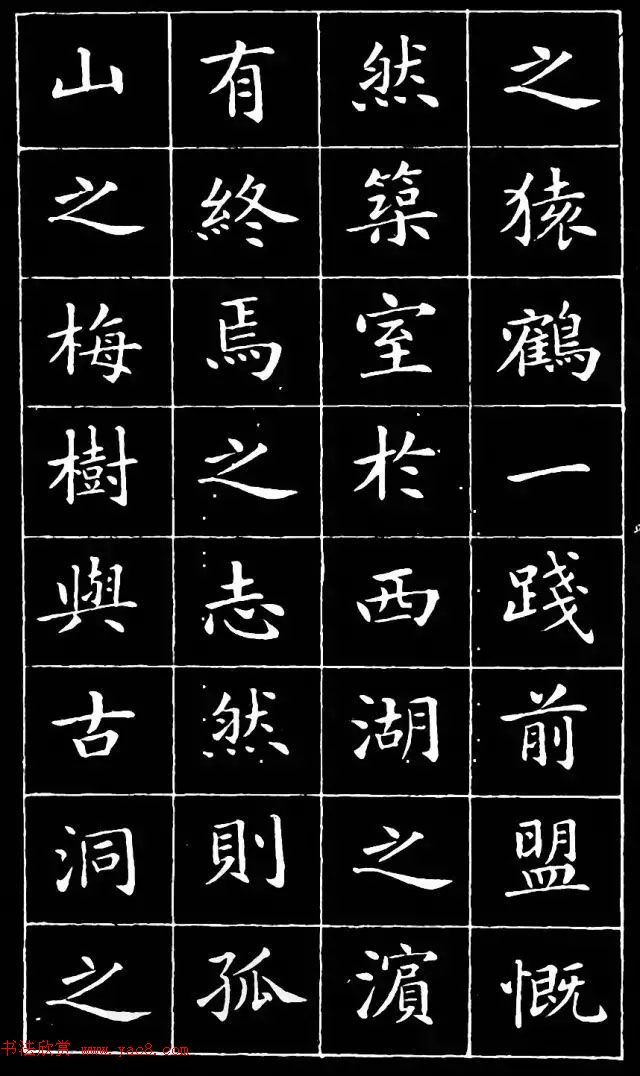 之猿鶴一踐前盟慨
然築室於西湖之濵
有終焉之志然則孤
山之梅樹與古洞之
书法欣赏 www.yac8.com